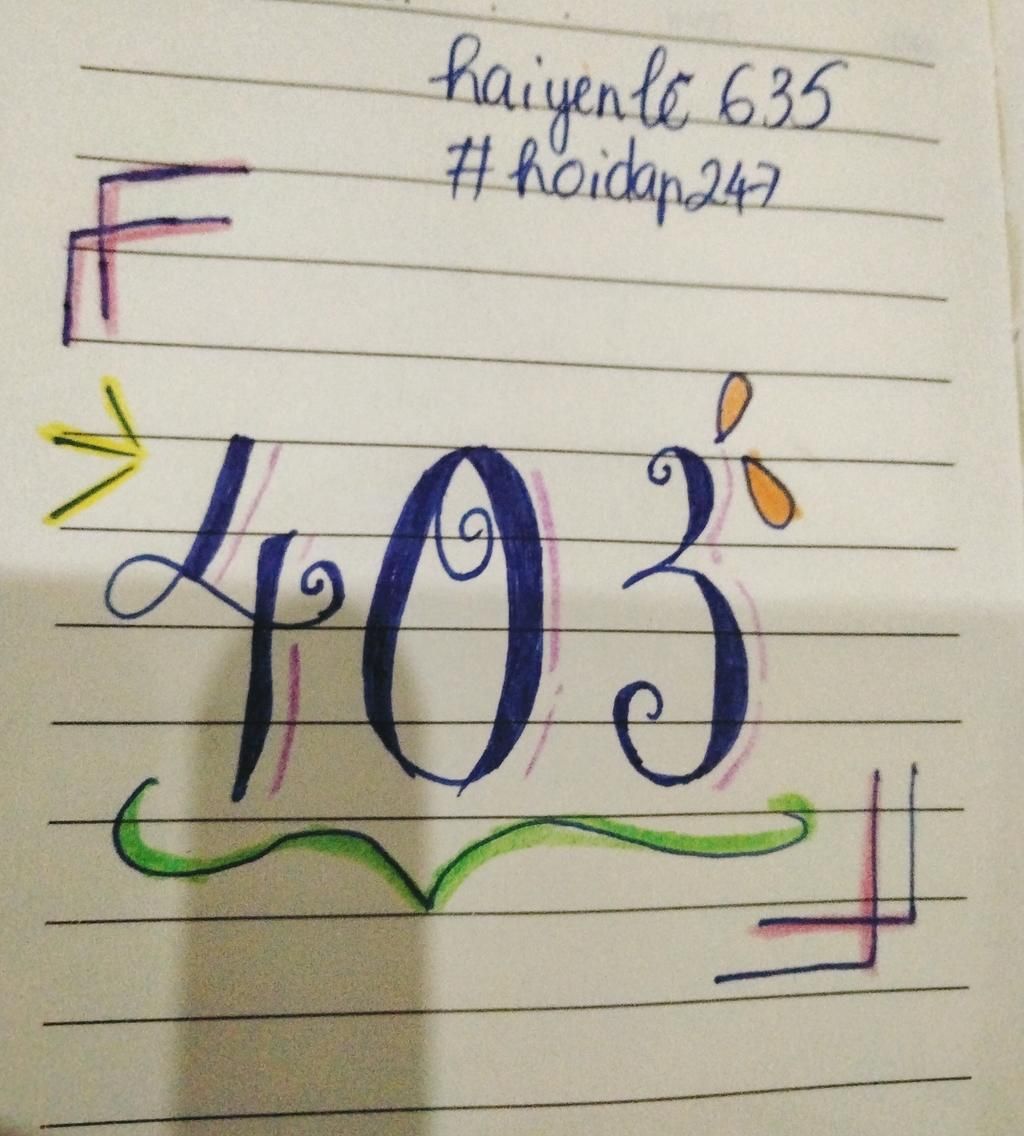 haiyenlê 635
#hoidap247
403